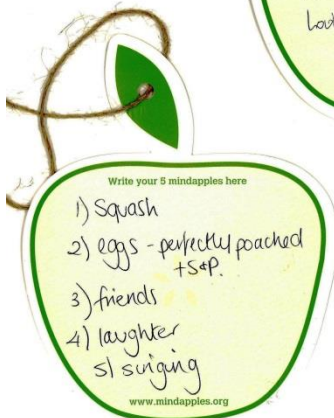 Write your 5 mindapples here
1) Squash
2) eggs - perfectly poached
+S+P.
3) friends
4) laughter
5) singing
www.mindapples.org